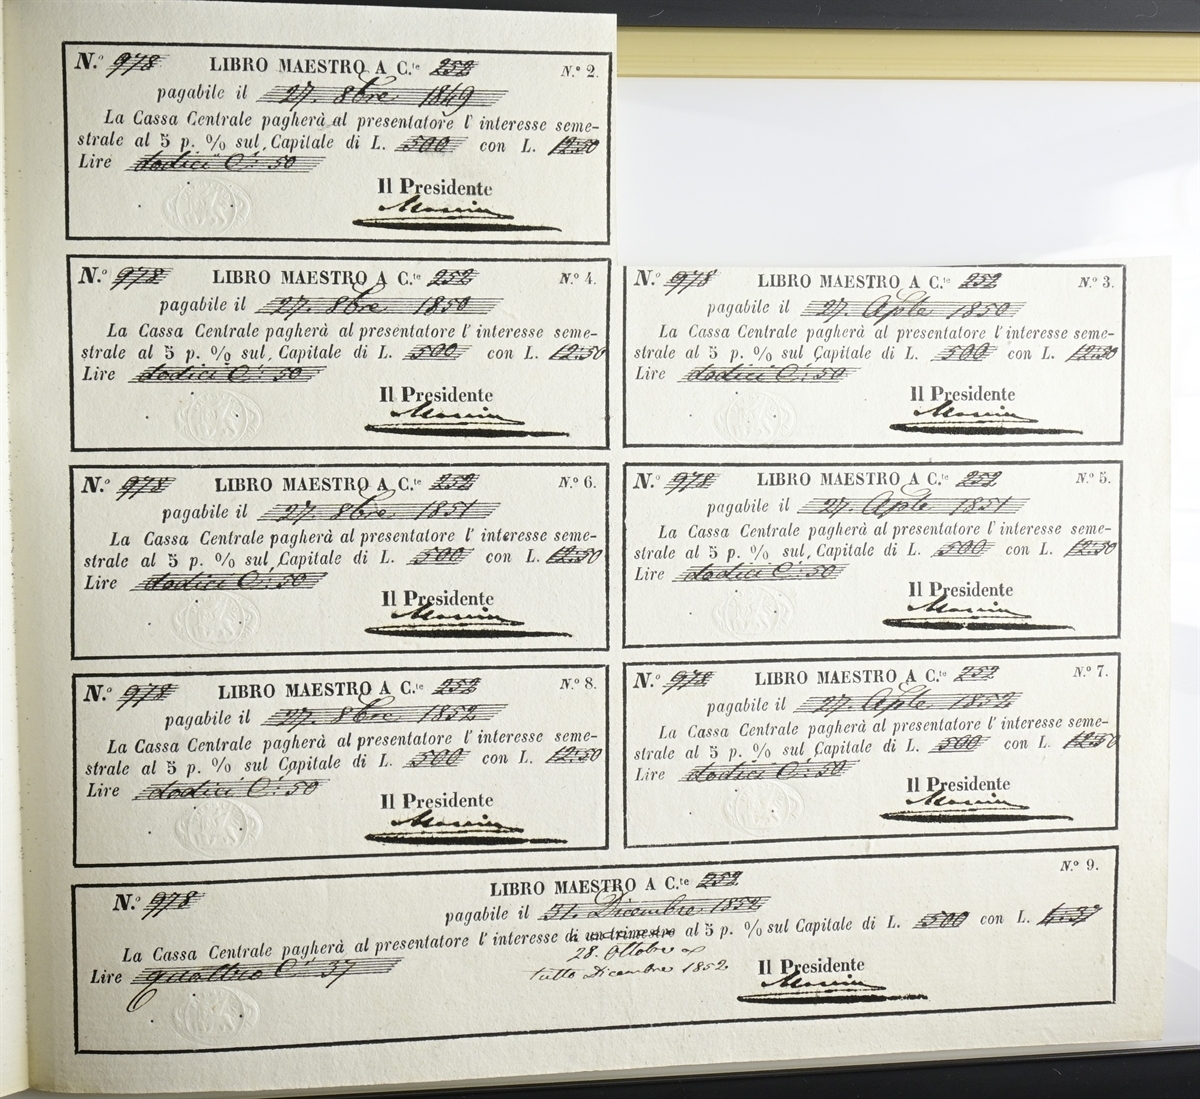 N.º 978 LIBRO MAESTRO A C.te 252 N.º 2.
pagabile il 27. 8bre 1849
La Cassa Centrale pagherà al presentatore l' interesse seme-
strale al 5 p. % sul Capitale di L. 500 con L. 12:50
Lire dodici C.i 50
Il Presidente
N.º 978 LIBRO MAESTRO A C.te 252 N.º 4.
pagabile il 27. 8bre 1850
La Cassa Centrale pagherà al presentatore l' interesse seme-
strale al 5 p. % sul Capitale di L. 500 con L. 12:50
Lire dodici C.i 50
Il Presidente
N.º 978 LIBRO MAESTRO A C.te 252 N.º 3.
pagabile il 27. Aple 1850
La Cassa Centrale pagherà al presentatore l' interesse seme-
strale al 5 p. % sul Capitale di L. 500 con L. 12:50
Lire dodici C.i 50
Il Presidente
N.º 978 LIBRO MAESTRO A C.te 252 N.º 6.
pagabile il 27. 8bre 1851
La Cassa Centrale pagherà al presentatore l' interesse seme-
strale al 5 p. % sul Capitale di L. 500 con L. 12:50
Lire dodici C.i 50
Il Presidente
N.º 978 LIBRO MAESTRO A C.te 252 N.º 5.
pagabile il 27. Aple 1851
La Cassa Centrale pagherà al presentatore l' interesse seme-
strale al 5 p. % sul Capitale di L. 500 con L. 12:50
Lire dodici C.i 50
Il Presidente
N.º 978 LIBRO MAESTRO A C.te 252 N.º 8.
pagabile il 27. 8bre 1852
La Cassa Centrale pagherà al presentatore l' interesse seme-
strale al 5 p. % sul Capitale di L. 500 con L. 12:50
Lire dodici C.i 50
Il Presidente
N.º 978 LIBRO MAESTRO A C.te 252 N.º 7.
pagabile il 27. Aple 1852
La Cassa Centrale pagherà al presentatore l' interesse seme-
strale al 5 p. % sul Capitale di L. 500 con L. 12:50
Lire dodici C.i 50
Il Presidente
N.º 978 LIBRO MAESTRO A C.te 252 N.º 9.
pagabile il 31. Dicembre 1852
La Cassa Centrale pagherà al presentatore l' interesse di un trimestre al 5 p. % sul Capitale di L. 500 con L. 4:37
28. Ottobre a
Lire quattro C.i 37 tutto Dicembre 1852
Il Presidente